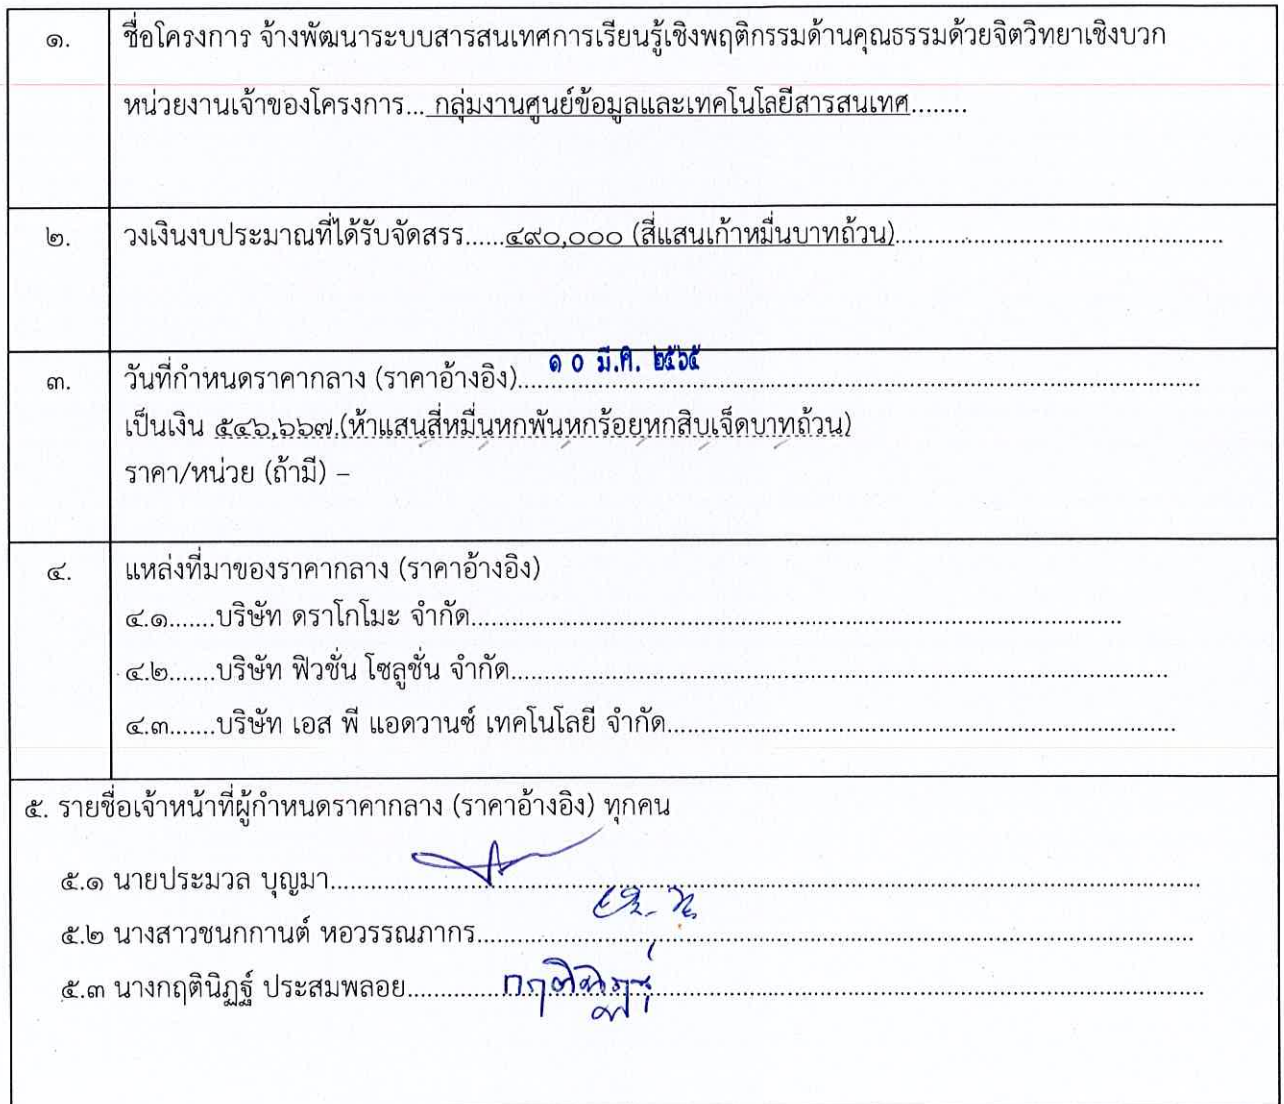 ๑. ชื่อโครงการ จ้างพัฒนาระบบสารสนเทศการเรียนรู้เชิงพฤติกรรมด้านคุณธรรมด้วยจิตวิทยาเชิงบวก
หน่วยงานเจ้าของโครงการ... กลุ่มงานศูนย์ข้อมูลและเทคโนโลยีสารสนเทศ........
๒. วงเงินงบประมาณที่ได้รับจัดสรร......๔๙๐,๐๐๐ (สี่แสนเก้าหมื่นบาทถ้วน)......
๓. วันที่กำหนดราคากลาง (ราคาอ้างอิง)......๑ ๐ มี.ค. ๒๕๖๕......
เป็นเงิน ๕๔๖,๖๖๗.(ห้าแสนสี่หมื่นหกพันหกร้อยหกสิบเจ็ดบาทถ้วน)
ราคา/หน่วย (ถ้ามี) –
๔. แหล่งที่มาของราคากลาง (ราคาอ้างอิง)
๔.๑.......บริษัท ดราโกโมะ จำกัด......
๔.๒.......บริษัท ฟิวชั่น โซลูชั่น จำกัด......
๔.๓.......บริษัท เอส พี แอดวานซ์ เทคโนโลยี จำกัด......
๕. รายชื่อเจ้าหน้าที่ผู้กำหนดราคากลาง (ราคาอ้างอิง) ทุกคน
๕.๑ นายประมวล บุญมา......
๕.๒ นางสาวชนกกานต์ หอวรรณภากร......
๕.๓ นางกฤตินิฏฐ์ ประสมพลอย......กฤตินิฏฐ์......